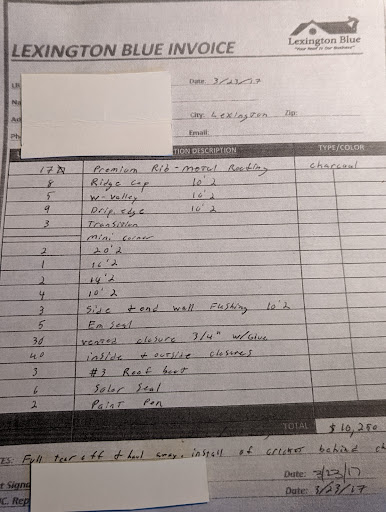 LEXINGTON BLUE INVOICE
Lexington Blue
"Your Roof Is Our Business"
Date: 3/23/17
City: Lexington Zip:
Email:
TION DESCRIPTION TYPE/COLOR
Premium Rib-Metal Roofing Charcoal
8 Ridge Cap 10'2
5 W-Valley 10'2
9 Drip edge 10'2
3 Transition
mini corner
2 20'2
1 16'2
2 14'2
4 10'2
3 Side + end wall Flashing 10'2
5 Em Seal
30 vented closure 3/4" w/Glue
40 inside + outside closures
3 #3 Roof boot
6 Solar Seal
2 Paint Pen
TOTAL $10,250
ES: Full tear off + haul away, install of cricket behind ch
t Signa Date: 3/22/17
C. Rep Date: 3/23/17